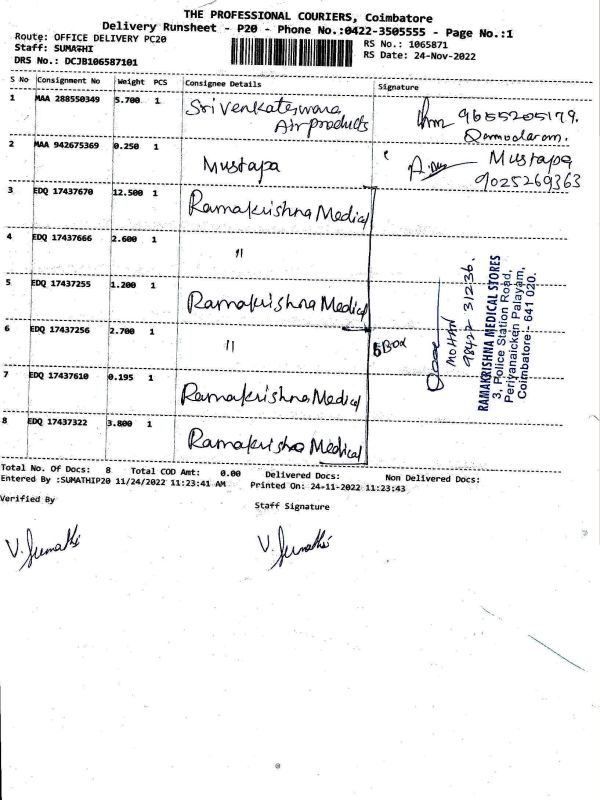 THE PROFESSIONAL COURIERS, Coimbatore
Delivery Runsheet - P20 - Phone No.:0422-3505555 - Page No.:1
Route: OFFICE DELIVERY PC20
RS No.: 1065871
Staff: SUMATHI
RS Date: 24-Nov-2022
DRS No.: DCJB106587101
S No Consignment No Weight PCS Consignee Details Signature
1 MAA 288550349 5.700 1 Sri Venkateswara Airproducts 9655205179.
2 MAA 942675369 0.250 1 Mustapa Mustapa 9025269363
3 EDQ 17437670 12.500 1 Ramakrishna Medical
4 EDQ 17437666 2.600 1 "
5 EDQ 17437255 1.200 1 Ramakrishna Medical
6 EDQ 17437256 2.700 1 " 6 Box
7 EDQ 17437610 0.195 1 Ramakrishna Medical
8 EDQ 17437322 3.800 1 Ramakrishna Medical
MOHAN
98422 31236.
RAMAKRISHNA MEDICAL STORES
3, Police Station Road,
Periyanaicken Palayam,
Coimbatore - 641 020.
Total No. Of Docs: 8 Total COD Amt: 0.00 Delivered Docs: Non Delivered Docs:
Entered By :SUMATHIP20 11/24/2022 11:23:41 AM Printed On: 24-11-2022 11:23:43
Verified By Staff Signature
V. Sumathi V. Sumathi